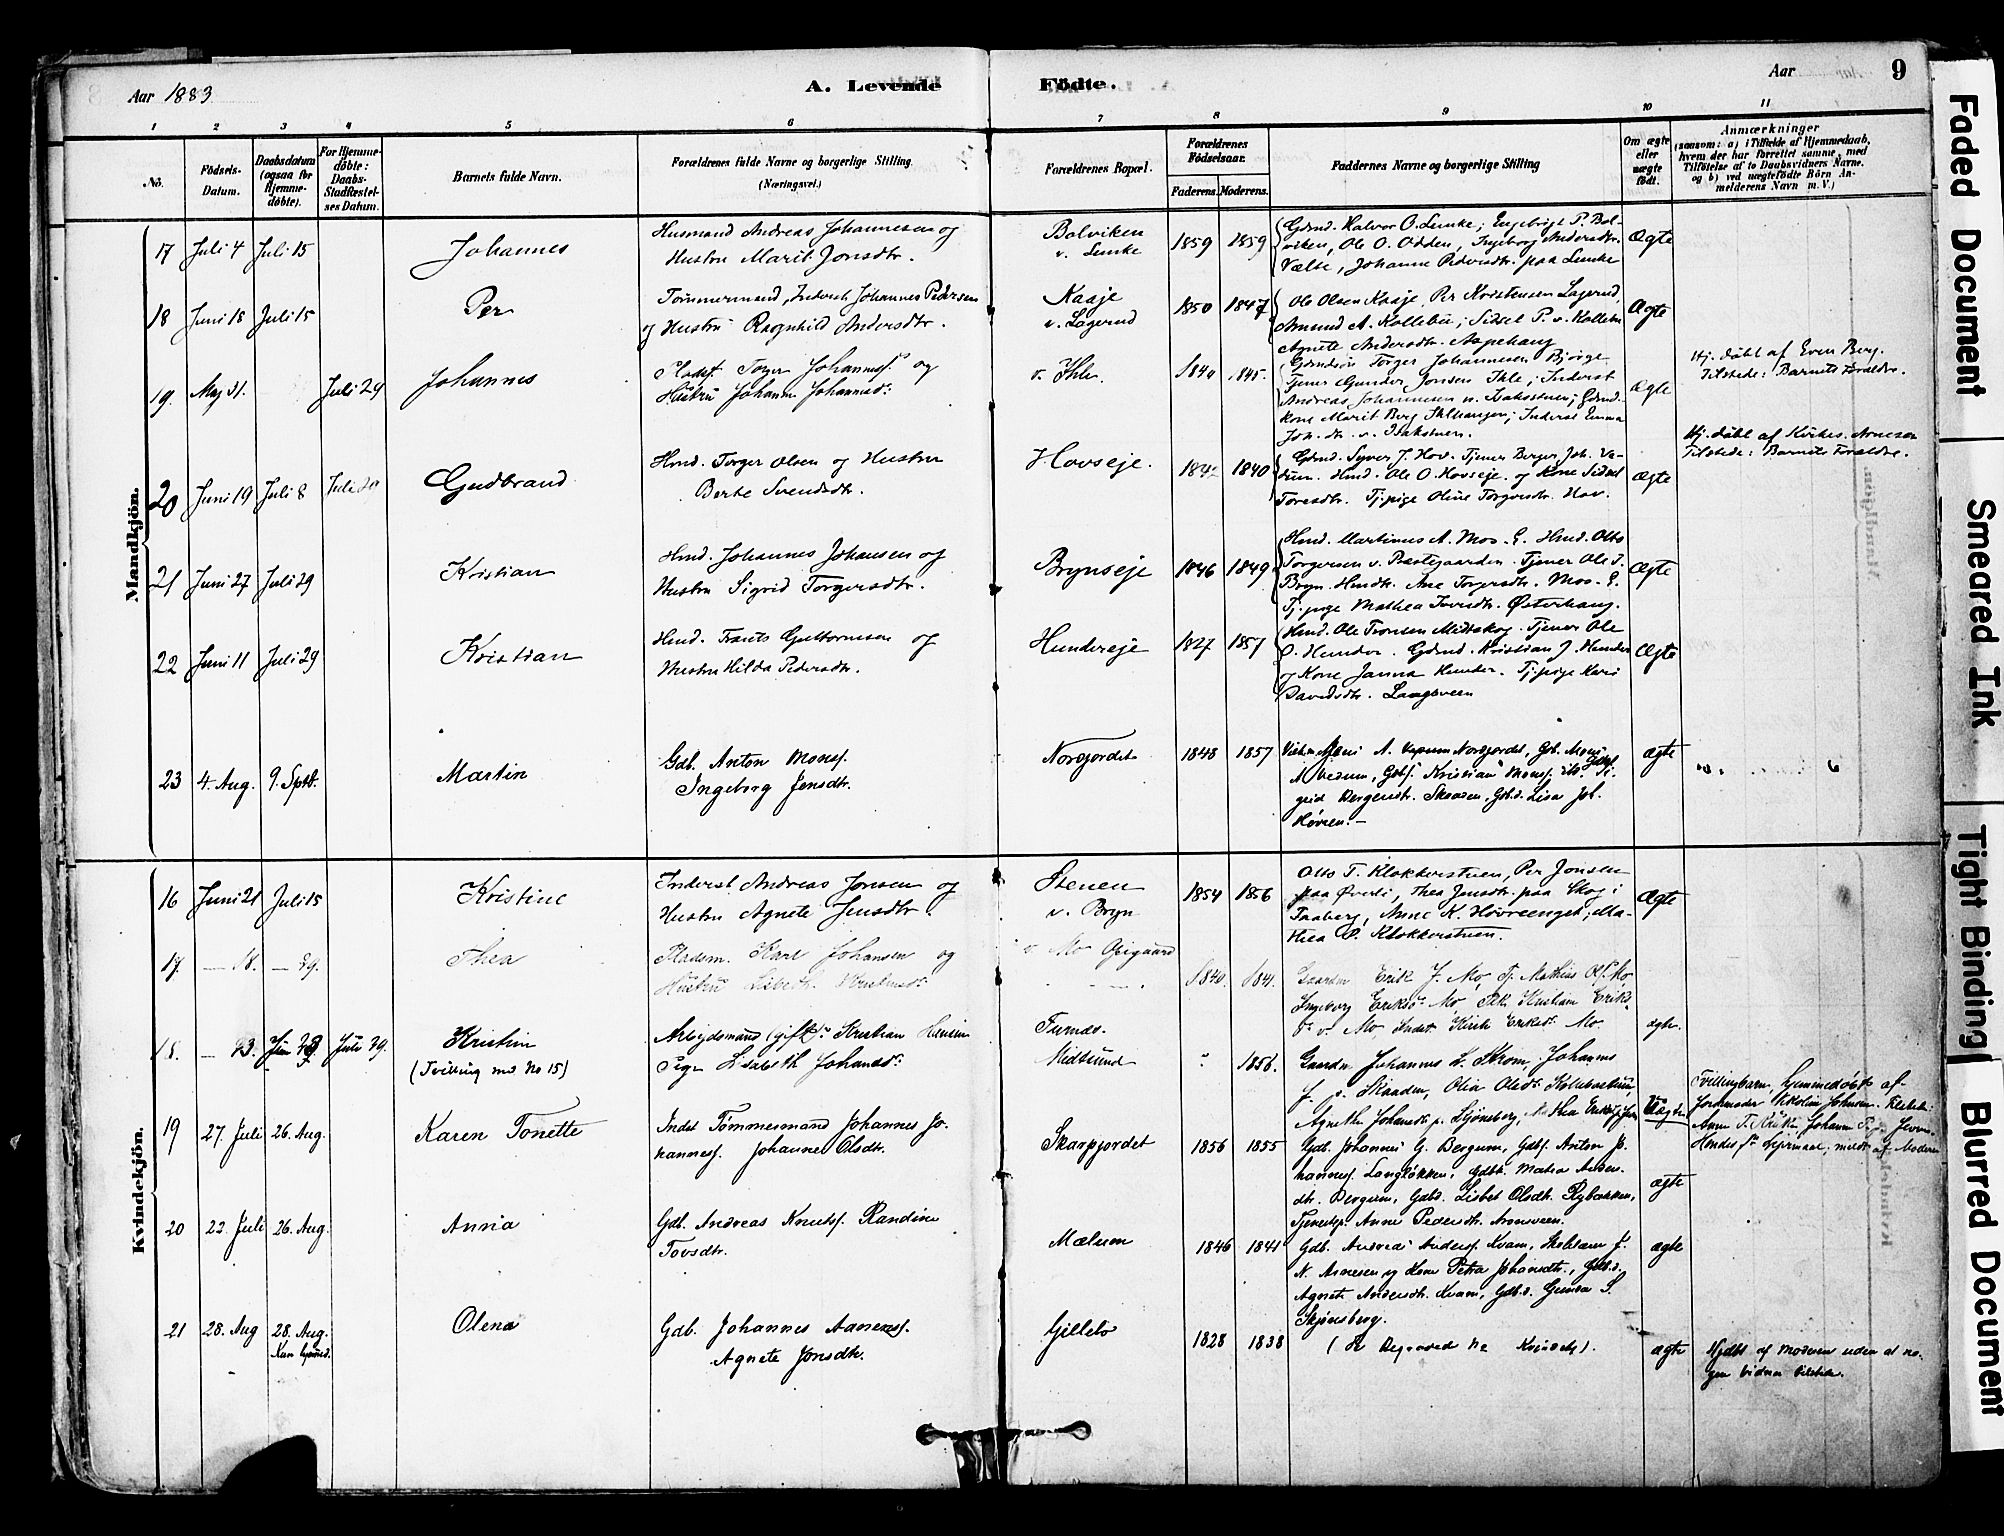 Aar 1883
A. Levende
Födte.
Aar
9
1 2 3 4 5 6 7 8 9 10 11
No.
Födsels-
Datum.
Daabsdatum
(ogsaa for
Hjemme-
döbte).
For Hjemme-
döbte:
Daabs-
Stadfæstel-
ses Datum.
Barnets fulde Navn.
Forældrenes fulde Navne og borgerlige Stilling.
(Næringsvei.)
Forældrenes Bopæl.
Forældrenes
Födselsaar.
Faderens. Moderens.
Faddernes Navne og borgerlige Stilling
Om ægte
eller
uægte
født.
Anmærkninger
(saasom: a) i Tilfælde af Hjemmedaab,
hvem der har forrettet samme, med
Tilföielse af to Daabsvidners Navne.
og b) ved uægtefödte Börn An-
melderens Navn m. V.)
Mandkjön.
17 Juli 4 Juli 15
Johannes
Husmand Andreas Johannesen og
Hustru Marit Jonsdtr.
Bolviken
v. Lunke
1859 1859
Gdmd. Halvor O. Lunke; Engebrigt P. Bol-
viken, Ole O. Odden, Ingeborg Andersdtr.
Vælte, Johanne Pedersdtr. paa Lunke
Ægte
18 Juni 18 Juli 15
Per
Tømmermand, Inderst Johannes Pedersen
og Hustru Ragnhild Andersdtr.
Kaaje
v. Lagerud
1850 1847
Ole Olsen Kaaje, Per Kristensen Lagerud,
Amund A. Kollebu; Sidsel P. v. Kollebu
Agnete Andersdtr. Aspehaug
Ægte
19. Maj 31. Juli 29
Johannes
Johannesf. og
Hustru Johanne Johannesd.
v. Ihle.
1840 1845.
Gdmdsøn Torger Johannesen Bjørge
Tjener Gunder Jonsen Ihle; Inderst
Andreas Johannesen v. Isakstuen; Gdmd-
kone Marit Berg Ihlhaugen; Inderst Emma
Joh. dtr. v. Isakstuen.
Ægte
Hj. døbt af Even Berg.
Tilstede: Barnets Forældre.
20 Juni 19 Juli 8 Juli 29
Gudbrand
Hmd. Torger Olsen og Hustru
Berte Svendsdtr.
Hovseje.
1840
Gdmd. Syver J. Hov. Tjener Berger Joh. Ve-
drum. Hmd. Ole O. Hovseje og Kone Sidsel
Toresdtr. Tj.pige Oline Torgersdtr. Hov.
Ægte
Hj. døbt af Kirkes. Arnesen
Tilstede: Barnets Forældre.
21 Juni 27 Juli 29
Kristian
Hmd. Johannes Johansen og
Hustru Sigrid Torgersdtr.
Brynseje
1846 1849
Hmd. Martinus A. Moe. E. Hmd. Otto
Torgersen v. Præstegaarden. Tjener Ole I.
Bryn. Hmdk. Ane Torgersdtr. Moe. E.
Tj. pige Mathea Iversdtr. Østerhaug.
Ægte
22 Juni 11 Juli 29
Kristian
Hmd. Frants Guttormsen og
Hustru Hilda Pedersdtr.
Hundereje
1827 1857
Hmd. Ole Tronsen Midtskog. Tjener Ole
O. Hunder. Gdmd. Kristian J. Hunder
og Kone Janna Hunder. Tj. pige Kari
Davidsdtr. Langsveen
Ægte
23 4. Aug. 9. Sptb.
Martin
Gdb. Anton Monsf.
Ingeborg Jensdtr.
Norgjordet
1848 1857
A. Norgjordet, Gdb. Mons
A. Kristian Monsf.
Bergendtr. Skaaden, Gbd. Lisa Joh.
Høvren.-
Ægte
Kvindekjön.
16 Juni 21 Juli 15
Kristine
Inderst Andreas Jonsen og
Hustru Agnete Jensdtr.
Stenen
v. Bryn
1854 1856
Otto T. Klokkerstuen, Per Jonsen
paa Øverli, Thea Jensdtr. paa Skog i
Faaberg, Anne K. Høvreenget; Ma-
thea P. Klokkerstuen.
Ægte
17. — 18. — 29.
Thea
Pladsm. Karl Johansen og
Hustru Lisbeth
v. Mo Opigaard
1840. 1841.
Gaardm Erik J. Mo, Tj. Mathias Ols. Mo
Ingeborg Eriksd. Mo,
v. Mo
ægte.
18. — 23. Juli 29.
Kristine
(Tvilling med No 15)
Arbejdsmand (gift) Kristian Hansen
Pige Lisabeth Johansd.
Furnæs.
Midtlund
1856.
Gaardm Johannes L. Strøm, Johannes
J. p. Skaaden, Olia Olsd. Kolbustuen,
Agnethe Johansdtr p. Sjøneberg,
Uægte
Tvillingbarn, hjemmedøbt af
Jordemoder Johnsen.
19 27. Juli 26. Aug.
Karen Tonette
Indst Tømmermand Johannes Jo-
hannesf. Johanne Olsdtr.
Skarpjordet
1856 1855
Gdb. Johannes G. Bergum, Gdbf. Anton Jo-
hannesf. Langløkken, Gdbk. Matea Anders-
dtr. Bergum, Gdbd. Lisbet Olsdtr. Rybakken,
Tjenestp. Anne Pedersdtr. Aronsveen.
ægte
20 22. Juli 26. Aug.
Anna
Gdb. Andreas Knutsf. Randine
Tovsdtr.
Mælum
1846 1841
Gdb. Andreas Andersf. Kvam, Skolelærer J.
N. Arnesen og Kone Petra Johansdtr., Gdbd.
Agnete Andersdtr. Kvam, Gdbd. Gunda S.
Skjønsberg.
ægte
21 28. Aug 28. Aug.
Kun hjemmed.
Olena
Gdb. Johannes Aanensf.
Agnete Jonsdtr.
Gillebo
1828 1838
ægte
Hjdbt af Moderen uden at no-
gen Vidner tilstede.
Faded Document
Smeared Ink
Tight Binding
Blurred Document